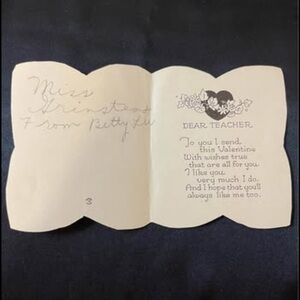 Miss
Grinstead
From Betty Lu
3
DEAR TEACHER,
To you I send
this Valentine
With wishes true
that are all for you.
I like you
very much I do.
And I hope that you'll
always like me too.